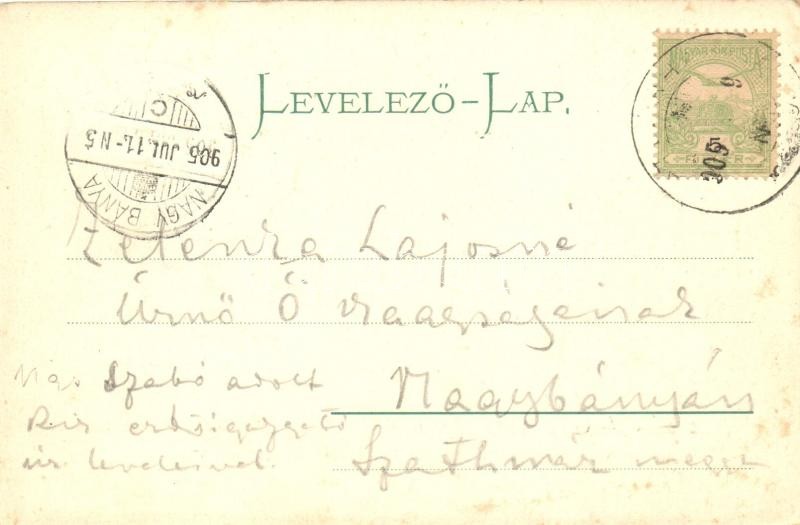 LEVELEZŐ-LAP.
MAGYAR KIR. POSTA
5
905
905 JUL. 11.- N 5
C
NAGY BÁNYA
Zelenka Lajosné
Úrnő Ő Nagyságának
Nagybányán
Szathmár megye
Ngs Szabó adolf
Kir erdőigazgató
úr levelével.